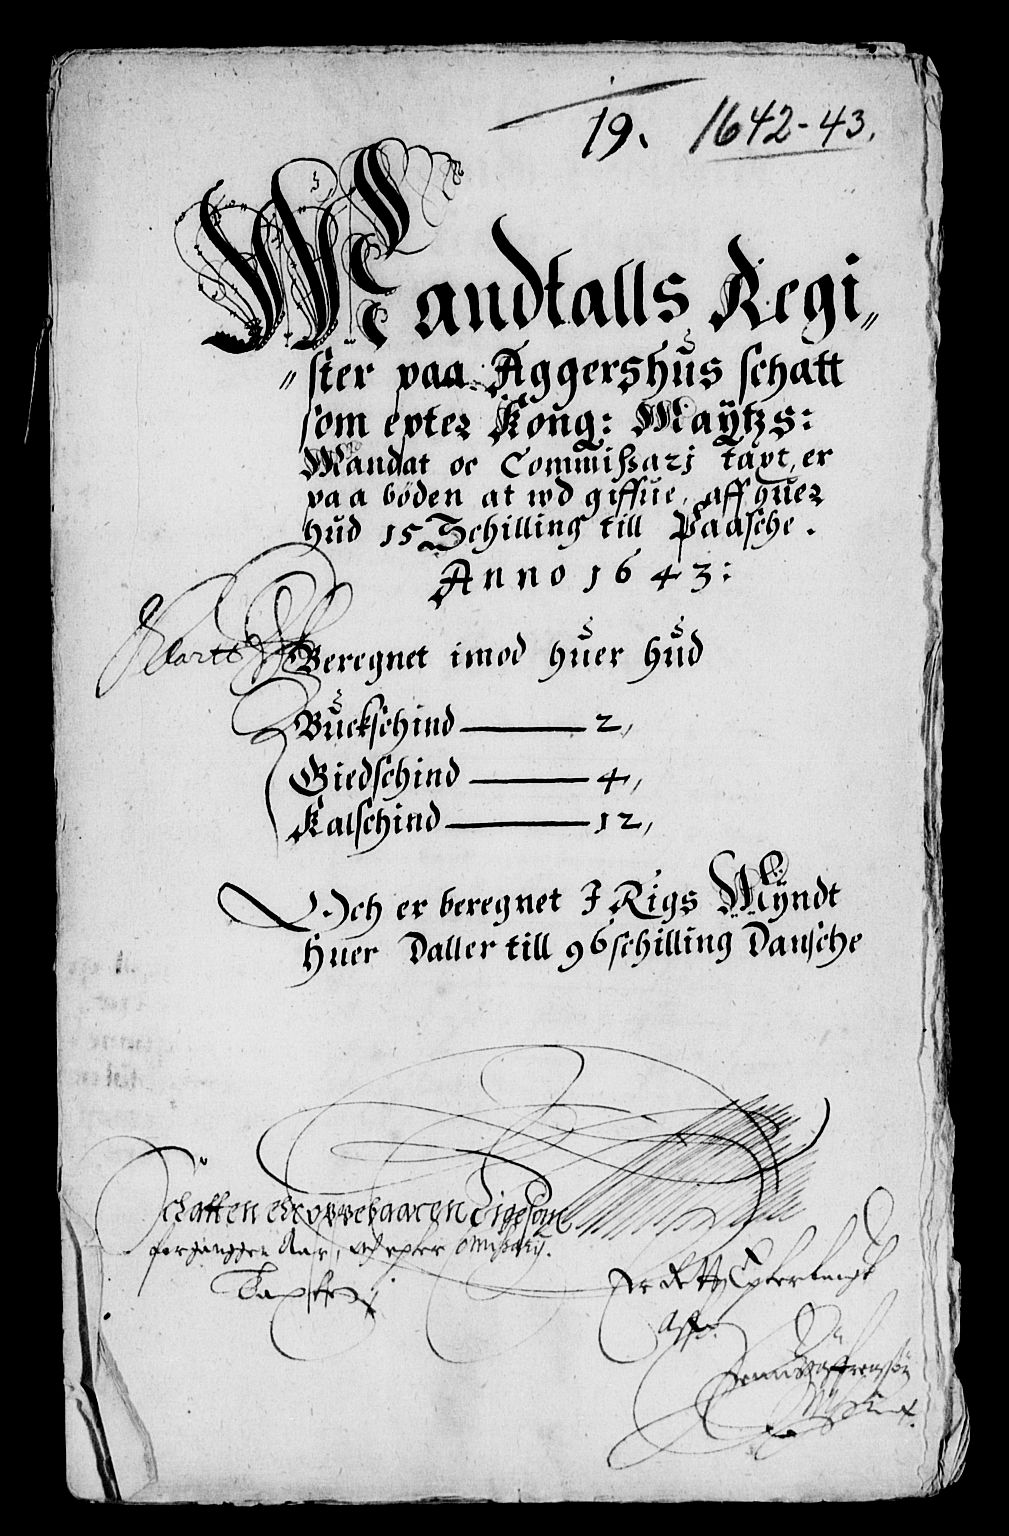 19. 1642-43.
Mandtalls Regi„
„ster paa Aggershus schatt
som epter Kong: Maÿtzs:
Mandat oc Commissarj taxt, er
paa böden at wd giffue, aff huer
hud 15 Schilling till Paasche.
Anno 1643:
Beregnet imod huer hud
Buckschind 2,
Giedschind 4,
Kalschind 12,
Och er beregnet J Rigs Mÿndt
huer Daller till 96 schilling Dansche
Schatten ehr oppebaaren Lige som
forganggen Aar, och epter
Er rett
Aff.